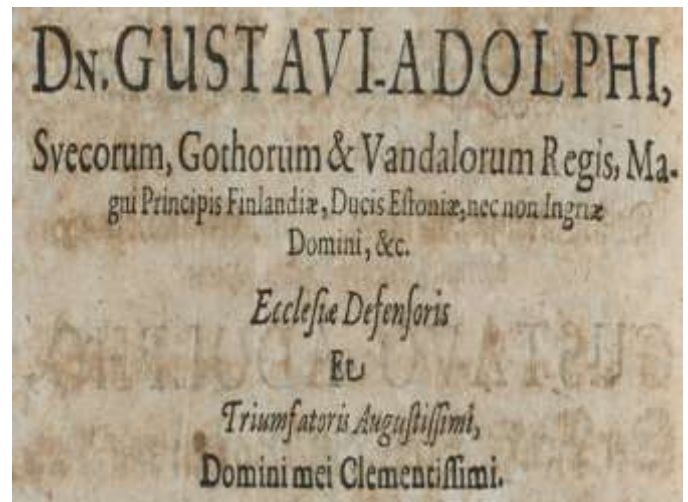 DN. GUSTAVI-ADOLPHI,
Svecorum, Gothorum & Vandalorum Regis, Ma-
gni Principis Finlandiæ, Ducis Eſtoniæ, nec non Ingriæ
Domini, &c.
Eccleſiæ Defenſoris
Et
Triumfatoris Auguſtiſſimi,
Domini mei Clementiſſimi.